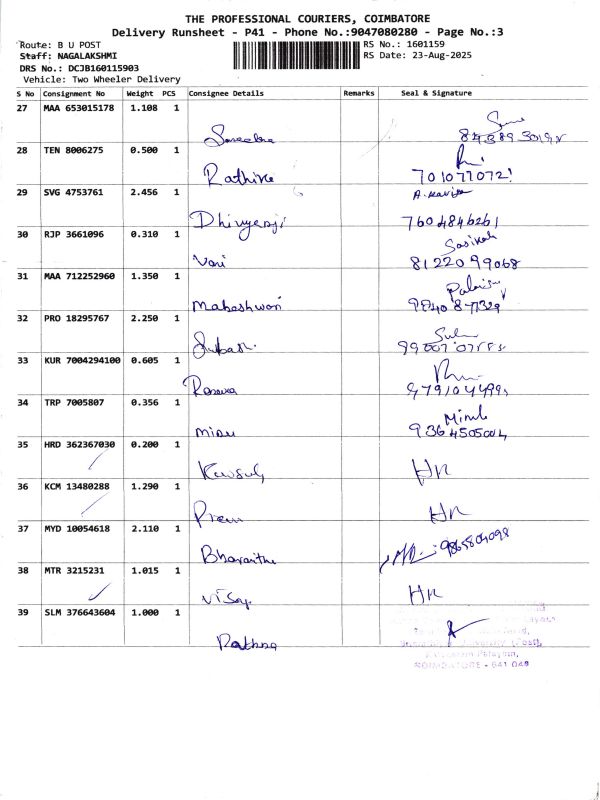 THE PROFESSIONAL COURIERS, COIMBATORE
Delivery Runsheet - P41 - Phone No.:9047080280 - Page No.:3
Route: B U POST
RS No.: 1601159
Staff: NAGALAKSHMI
RS Date: 23-Aug-2025
DRS No.: DCJB160115903
Vehicle: Two Wheeler Delivery
S No Consignment No Weight PCS Consignee Details Remarks Seal & Signature
27 MAA 653015178 1.108 1
28 TEN 8006275 0.500 1
Rathika
29 SVG 4753761 2.456 1 A. Kavija
Dhivyasji 7604846261
30 RJP 3661096 0.310 1 Sasikah
Vani 8122099068
31 MAA 712252960 1.350 1
Maheshwari
32 PRO 18295767 2.250 1
Subash
33 KUR 7004294100 0.605 1
34 TRP 7005807 0.356 1
Minu
35 HRD 362367030 0.200 1
HR
36 KCM 13480288 1.290 1
Prem HR
37 MYD 10054618 2.110 1
Bharanthi 9865804098
38 MTR 3215231 1.015 1
Vijay HR
39 SLM 376643604 1.000 1
Rathna
COIMBATORE - 641 046